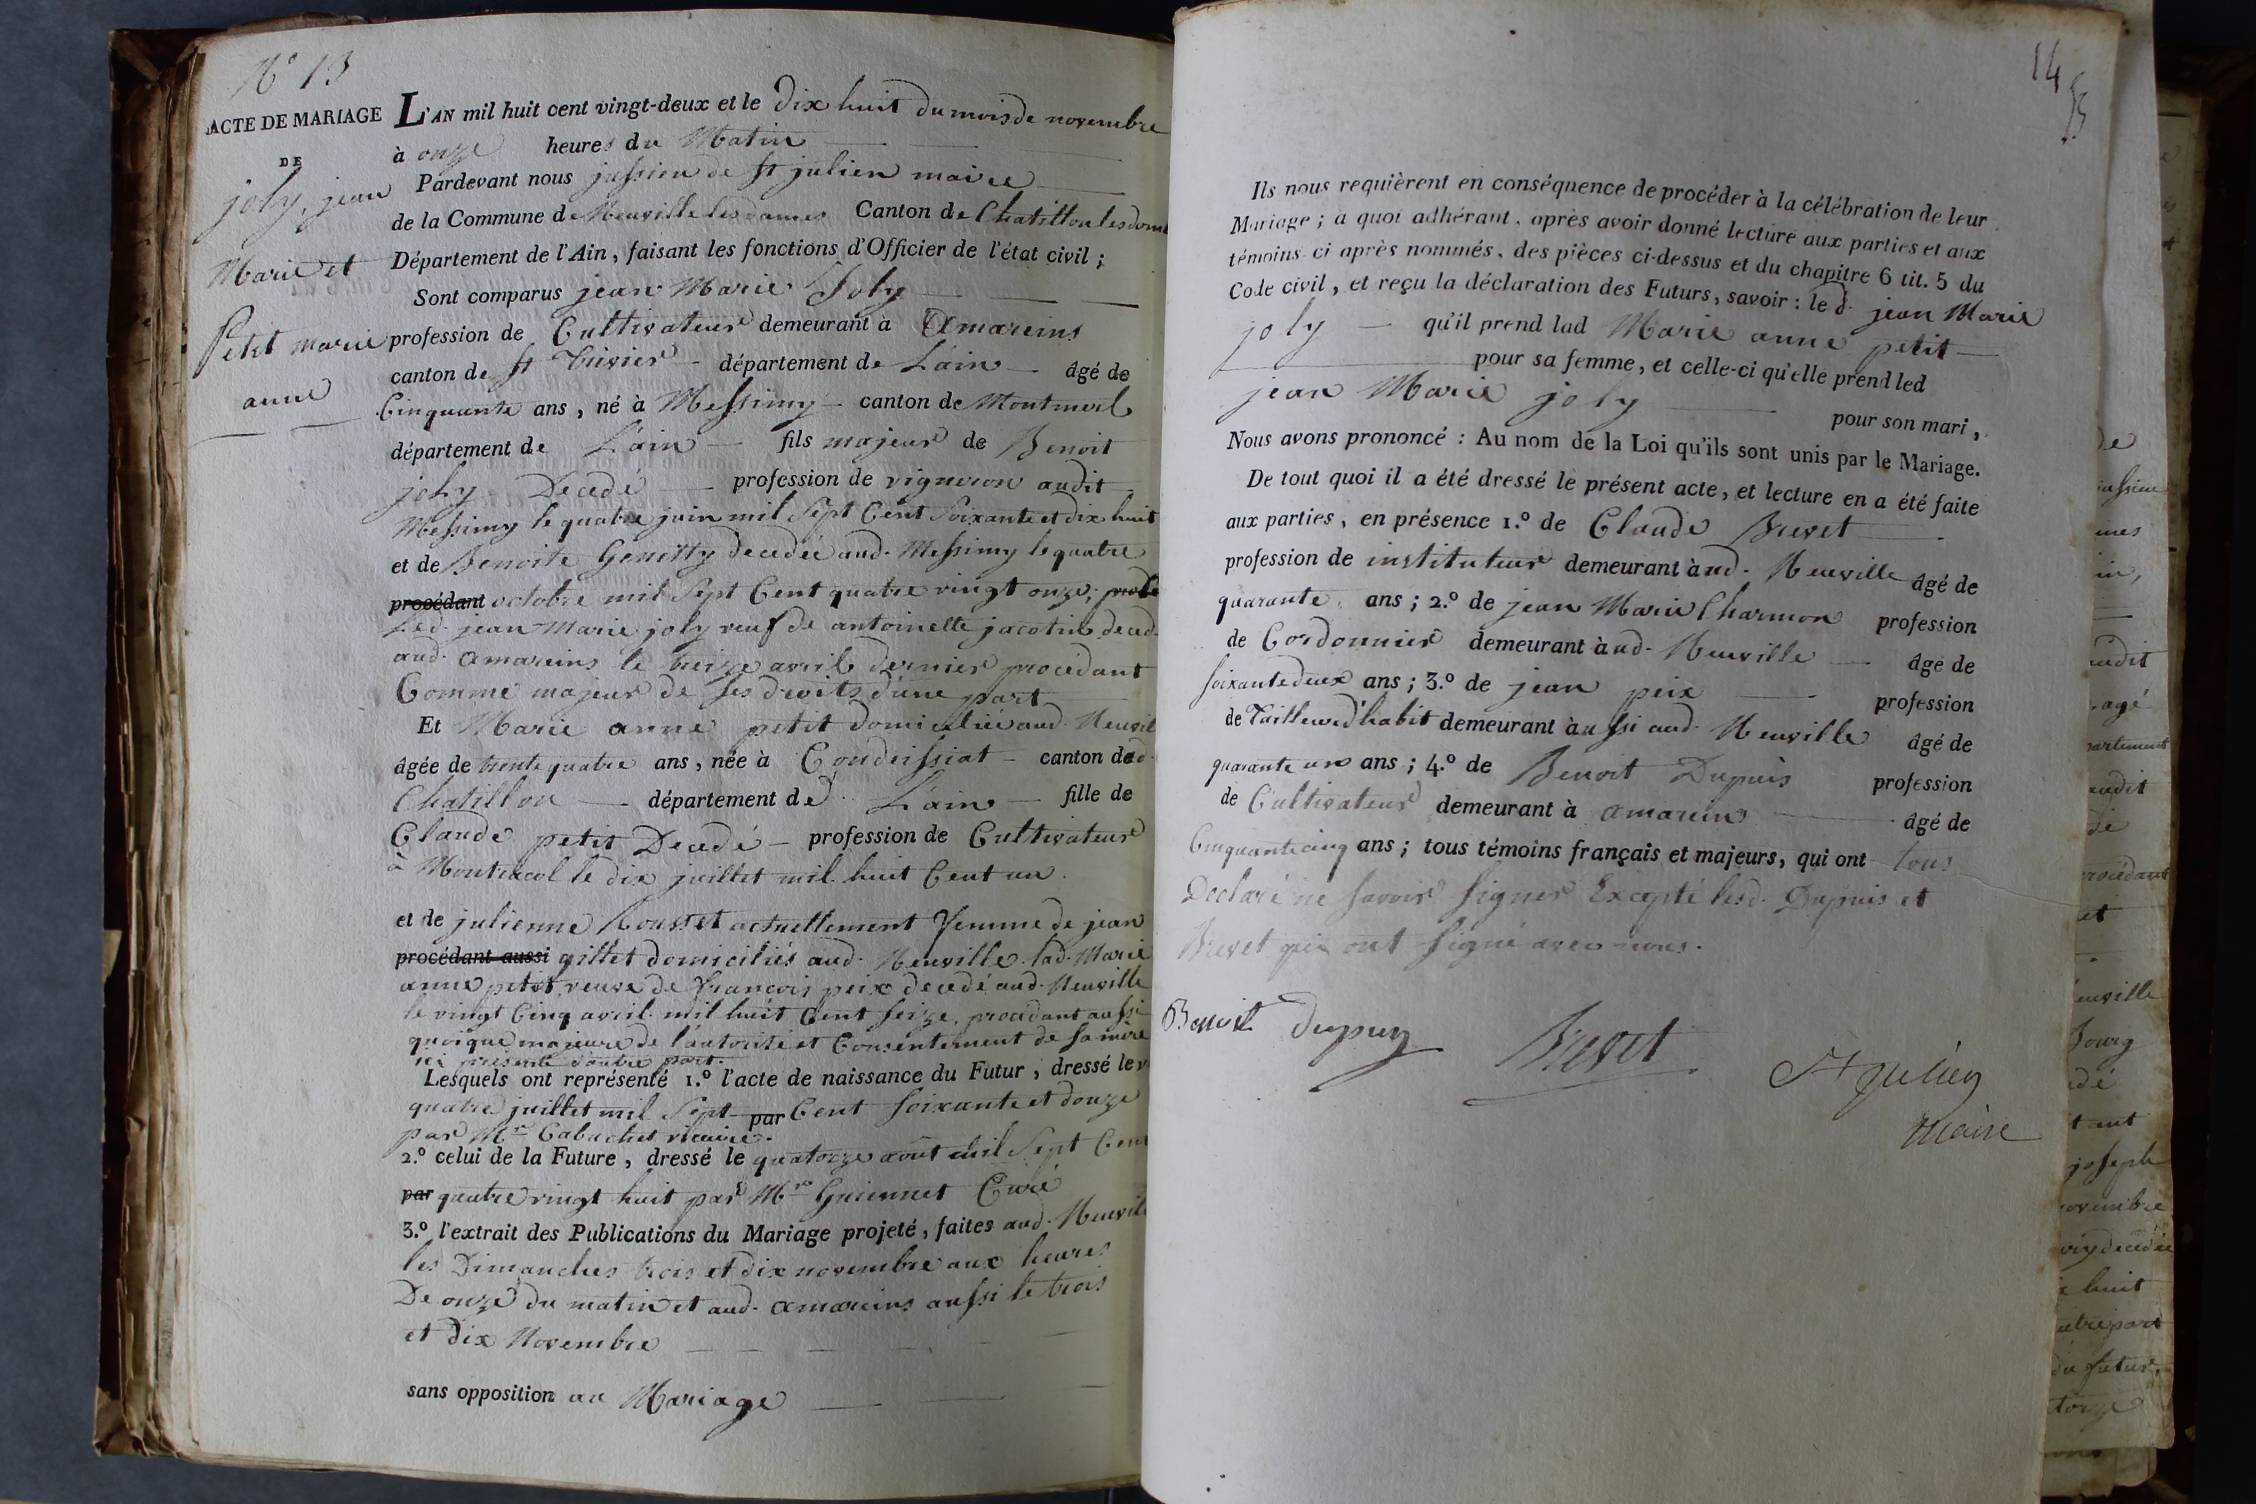 N° 13
ACTE DE MARIAGE
DE
joly, jean
Marie et
Petit marie
anne
L'AN mil huit cent vingt-deux et le dix huit du mois de novembre
à onze heures du Matin
Pardevant nous jussieu de st julien maire
de la Commune de Neuville les dames Canton de Chatillon les dom
Département de l'Ain, faisant les fonctions d'Officier de l'état civil;
Sont comparus jean Marie Joly
profession de Cultivateur demeurant à Amareins
canton de st Trivier département de L'ain âgé de
Cinquante ans, né à Messimy canton de Montmerl
département de L'ain fils majeur de Benoit
joly Decedé profession de vigneron audit
Messimy le quatre juin mil Sept Cent Soixante et dix huit
et de Benoite Genetty decedée aud. Messimy le quatre
procédant octobre mil Sept Cent quatre vingt onze;
Led. jean Marie joly veuf de antoinette jacotin deced.
aud. amareins le treize avril dernier procedant
Comme majeur de ses droits d'une part
Et Marie anne petit domiciliée aud. Neuvil
âgée de trente quatre ans, née à Condeissiat canton de d.
Chatillon département de L'ain fille de
Claude petit Decedé profession de Cultivateur
à Montracol le dix juillet mil huit Cent un.
et de julienne Rousset actuellement femme de jean
procédant aussi gillet domiciliés aud. Neuville. lad. Marie
anne petit veuve de francois peix decedé aud. Neuville
le vingt Cinq avril mil huit Cent Seize, procedant aussi
quoique majeure de l'autorité et Consentement de sa mère
ici présente d'autre part.
Lesquels ont représenté 1.° l'acte de naissance du Futur, dressé le v
quatre juillet mil Sept par Cent soixante et douze
par Mr Gabuchet vicaire.
2.° celui de la Future, dressé le quatorze août mil Sept Cent
par quatre vingt huit par Mre Guiennet Curé
3.° l'extrait des Publications du Mariage projeté, faites aud. Neuvill
les Dimanches trois et dix novembre aux heures
De onze du matin et aud. amareins aussi le trois
et dix Novembre
sans opposition au Mariage
14
Ils nous requièrent en conséquence de procéder à la célébration de leur
Mariage; à quoi adhérant, après avoir donné lecture aux parties et aux
témoins ci après nommés, des pièces ci-dessus et du chapitre 6 tit. 5 du
Code civil, et reçu la déclaration des Futurs, savoir: le d. jean Marie
joly qu'il prend lad Marie anne petit
pour sa femme, et celle-ci qu'elle prend led
jean Marie joly pour son mari,
Nous avons prononcé: Au nom de la Loi qu'ils sont unis par le Mariage.
De tout quoi il a été dressé le présent acte, et lecture en a été faite
aux parties, en présence 1.° de Claude Brevet
profession de instituteur demeurant à aud. Neuville âgé de
quarante ans; 2.° de jean Marie Charmon profession
de Cordonnier demeurant à aud. Neuville âgé de
soixante deux ans; 3.° de jean peix profession
de Tailleur d'habit demeurant aussi aud. Neuville âgé de
quarante un ans; 4.° de Benoit Dupuis profession
de Cultivateur demeurant à amareins âgé de
Cinquante cinq ans; tous témoins français et majeurs, qui ont tous
Declaré ne savoir signer Excepté lesd. Dupuis et
Brevet qui ont signé avec nous.
Benoit dupuy
Brevet
St julien
Maire